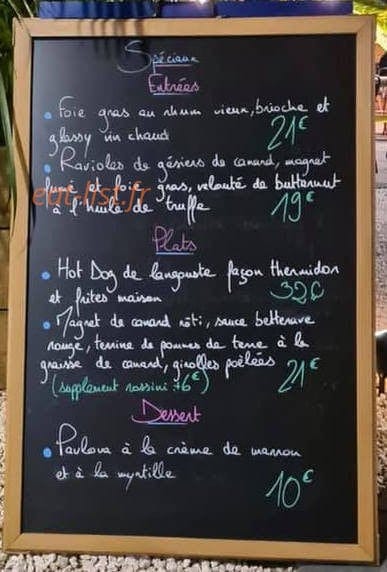 Spéciaux
Entrées
• Foie gras au rhum vieux, brioche et
glassy vin chaud 21€
• Ravioles de gésiers de canard, magret
fumé et foie gras, velouté de butternut
à l'huile de truffe 19€
eat-list.fr
Plats
• Hot Dog de langouste façon thermidor
et frites maison 32€
• Magret de canard rôti, sauce betterave
rouge, terrine de pommes de terre à la
graisse de canard, girolles poêlées
(supplément rossini +6€) 21€
Dessert
• Pavlova à la crème de marron
et à la myrtille
10€